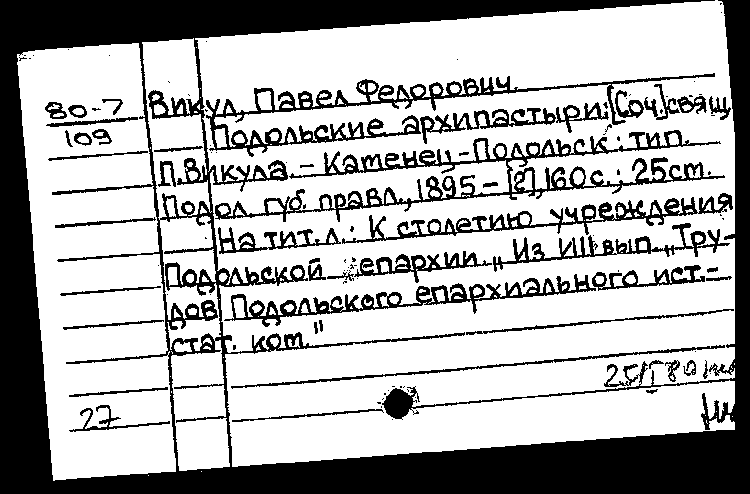 80-7 Викул, Павел Федорович.
109 Подольские архипастыри: [Соч.] свящ.
П. Викула. – Каменец-Подольск: тип.
Подол. губ. правл., 1895. – [2], 160 с.; 25 см.
На тит. л.: К столетию учреждения
Подольской епархии. „Из VIII вып. „Тру-
дов Подольского епархиального ист.-
стат. ком."
25/I 80
27